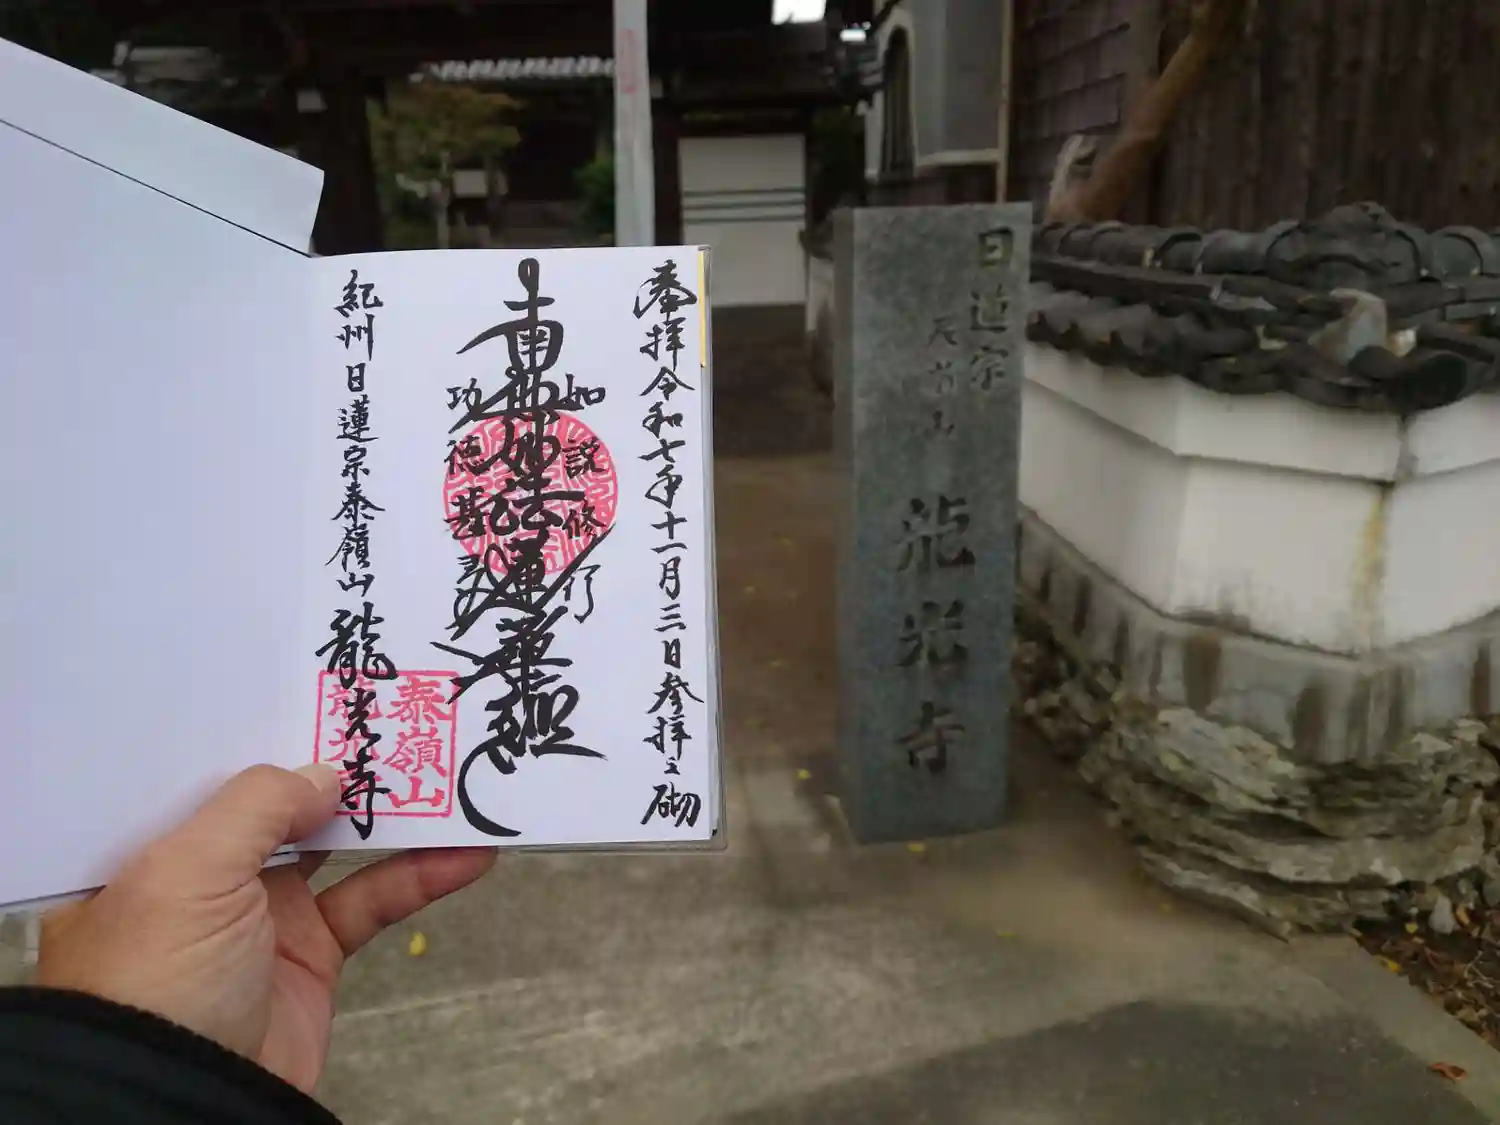 奉拝令和七年十一月三日参拝之砌
如説修行
南無妙法蓮華経
功徳甚多
紀州日蓮宗泰嶺山龍光寺
泰嶺山
龍光寺
日蓮宗
龍光寺